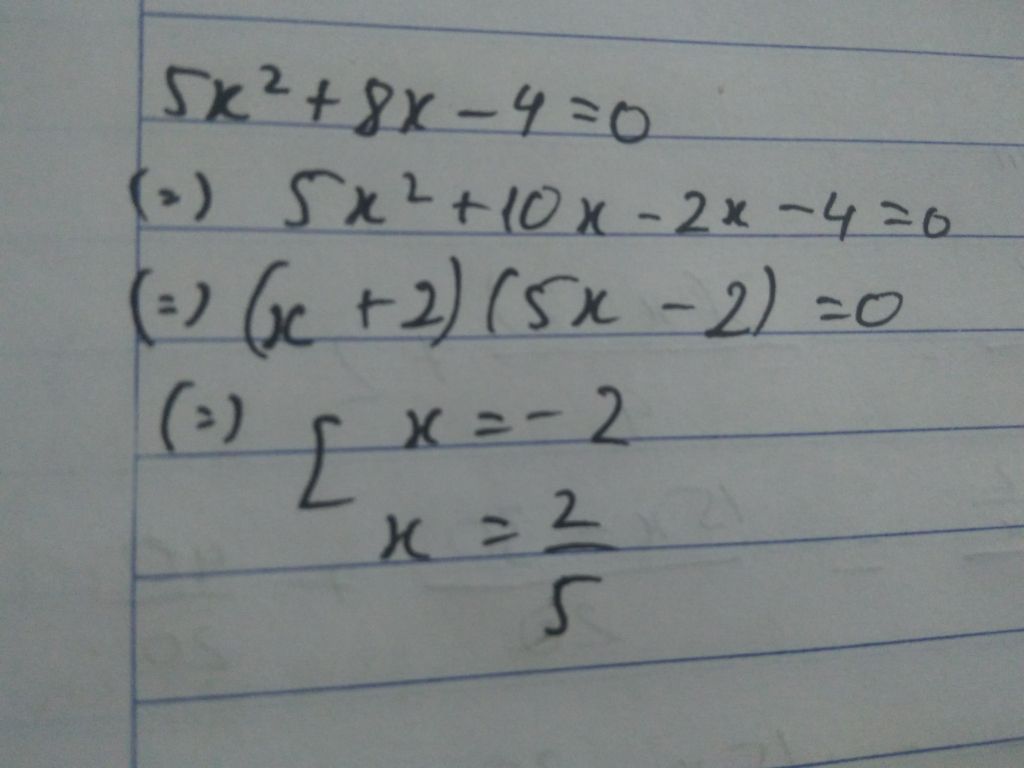 5x² + 8x - 4 = 0
(=) 5x² + 10x - 2x - 4 = 0
(=) (x + 2) (5x - 2) = 0
(=) [ x = - 2
x = 2/5